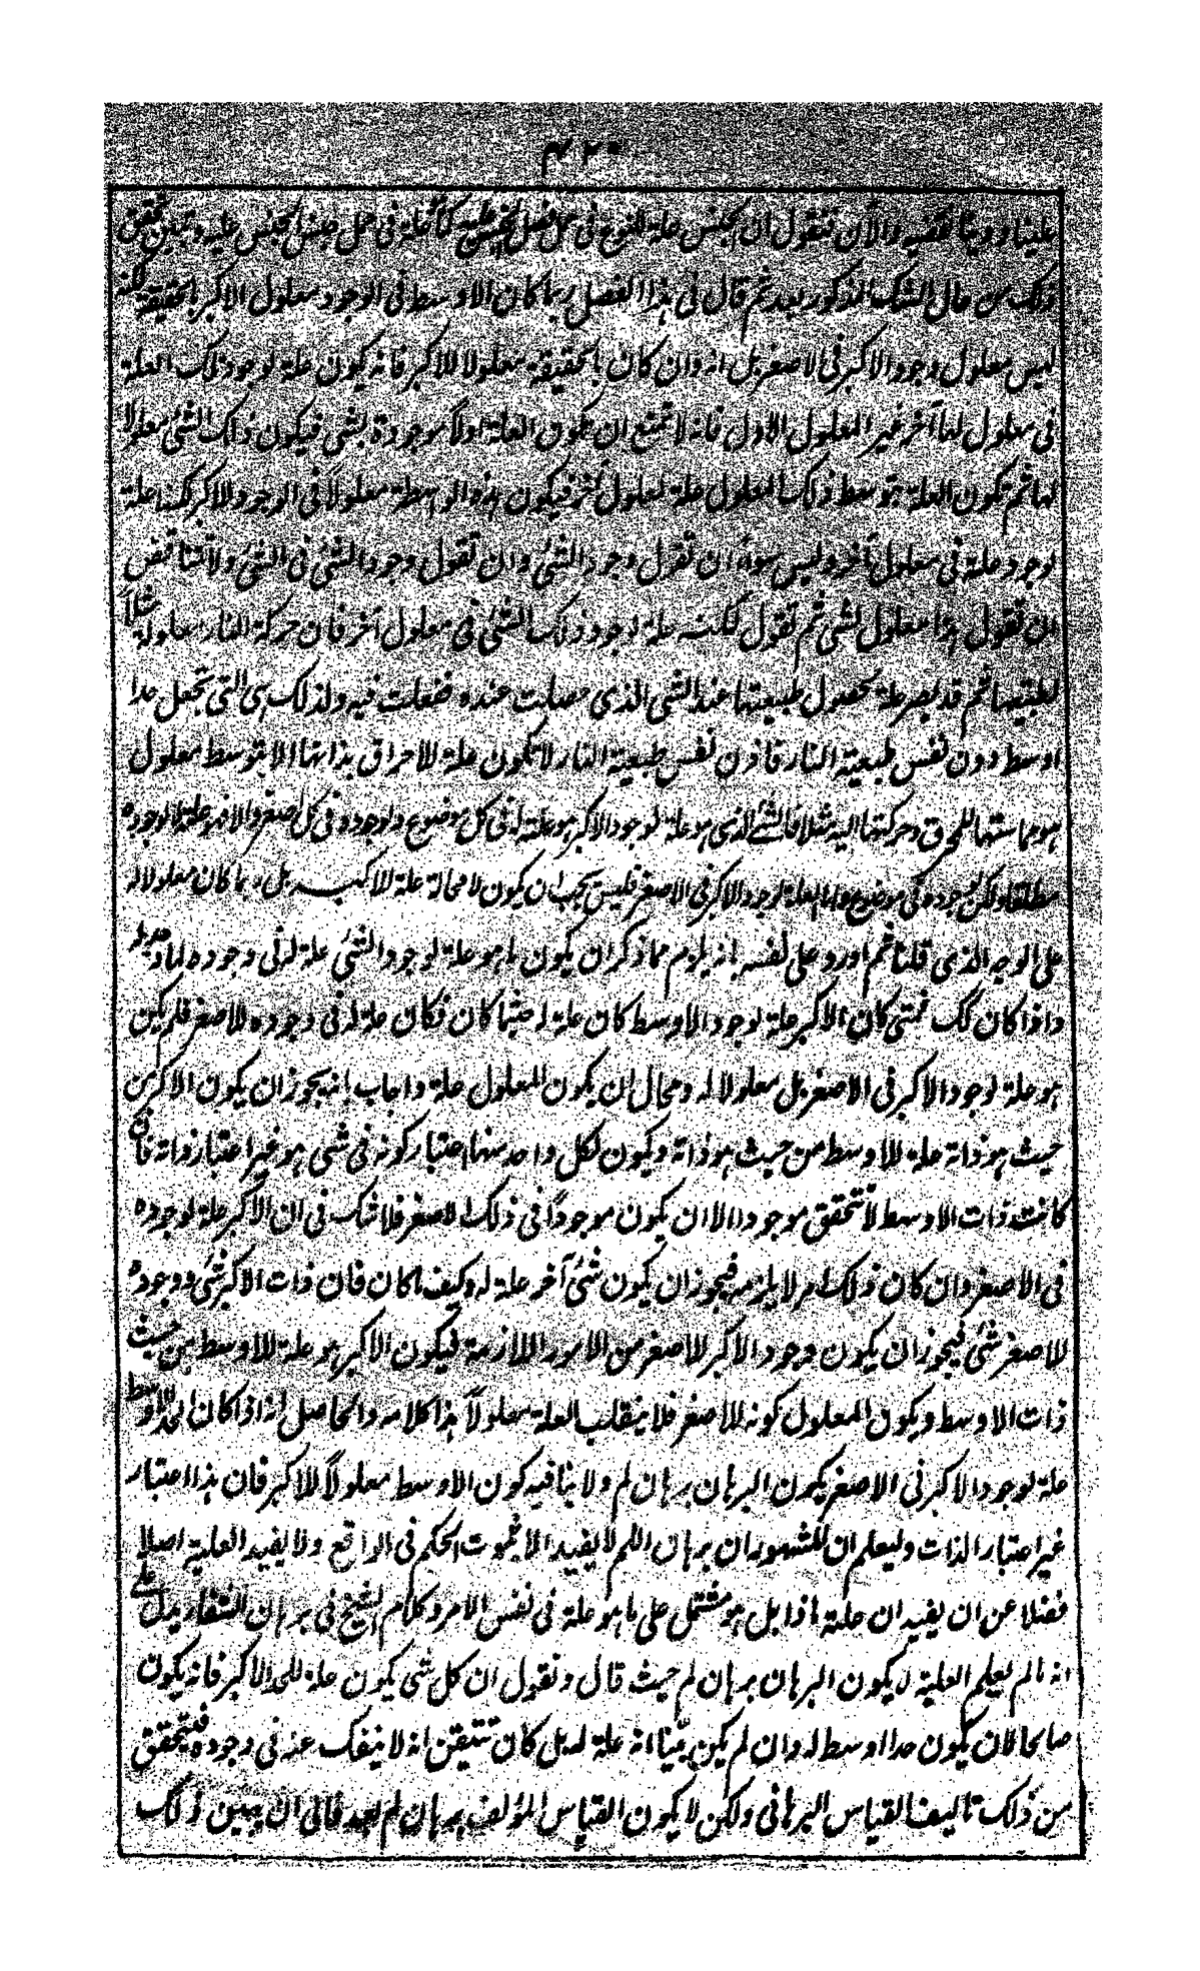 ٤٢٠
علينا وربنا نقضيه والآن فنقول ان الجنس علة النوع فى حمل فصل الجنس عليه كما انه فى حمل جنس الجنس عليه وتبين تحقيق
ذلك من حال الشك المذكور بعد ثم قال فى هذا الفصل ربما كان الاوسط فى الوجود معلول الاكبر بالحقيقة لكنه
ليس معلول وجود الاكبر فى الاصغر بل انه وان كان بالحقيقة معلولا للاكبر فانه يكون علة لوجود تلك العلة
فى معلول لها آخر غير المعلول الاول فانه لا تمتنع ان يكون العلة اولاً موجودة لشى فيكون ذلك الشئ معلولا
لها ثم تكون العلة بتوسط ذلك المعلول علة لمعلول آخر فيكون هذه الواسطة معلولاً فى الوجود للاكبر لكنها علة
لوجود علة فى معلول آخر وليس سواءً ان تقول وجود الشئ وان تقول وجود الشئ فى الشئ ولا تناقض
ان تقول هذا معلول لشى ثم تقول لكنه علة لوجود ذلك الشئ فى معلول آخر فان حركة النار معلولة مثلاً
لطبيعتها ثم قد يصير علة لحصول طبيعتها عند الشى الذى حصلت عنده ففعلت فيه ولذلك هى التى تجعل حدا
اوسط دون نفس طبيعية النار فاذن نفس طبيعية النار لا تكون علة للاحراق بذاتها الا بتوسط معلول
هو مماستها للمحرق وحركتها اليه مثلا فالشئ الذى هو علة لوجود الاكبر هو علة له فى كل موضوع ولوجوده فى كل اصغر والا فهو علة لا لوجوده
مطلقا ولكن لوجوده فى موضوع واما العلة لوجود الاكبر فى الاصغر فليس يجب ان يكون لا محالة علة للاكبر بل ربما كان معلولا له
على الوجه الذى قلنا ثم اورد على نفسه بانه يلزم مما ذكر ان يكون ما هو علة لوجود الشئ علة له فى وجوده لما وجد له
واذا كان كك فمتى كان الاكبر علة لوجود الاوسط كان علة له حيثما كان فكان علة له فى وجوده للاصغر فلم يكن
هو علة لوجود الاكبر فى الاصغر بل معلولا له ومحال ان يكون المعلول علة واجاب بانه يجوز ان يكون الاكبر من
حيث هو ذاته علة للاوسط من حيث هو ذاته ويكون لكل واحد منهما اعتبار كونه فى شى هو غير اعتبار ذاته فان
كانت ذات الاوسط لا تتحقق موجودا الا ان يكون موجوداً فى ذلك الاصغر فلا شك فى ان الاكبر علة لوجوده
فى الاصغر وان كان ذلك امر لا يلزمه فيجوز ان يكون شئ آخر علة له وكيف ما كان فان ذات الاكبر شئ ووجوده
للاصغر شئ فيجوز ان يكون وجود الاكبر للاصغر من الامور اللازمة فيكون الاكبر هو علة للاوسط من حيث
ذات الاوسط ويكون المعلول كونه للاصغر فلا ينقلب العلة معلولاً هذا كلامه والحاصل انه اذا كان الحد الاوسط
علة لوجود الاكبر فى الاصغر يكون البرهان برهان لم ولا ينافيه كون الاوسط معلولاً للاكبر فان هذا اعتبار
غير اعتبار الذات وليعلم ان المشهور ان برهان اللم لا يفيد الا ثبوت الحكم فى الواقع ولا يفيد العلية اصلا
فضلا عن ان يفيد ان علته ماذا بل هو مشتمل على ما هو علة فى نفس الامر وكلام الشيخ فى برهان الشفاء يدل على
انه ما لم يعلم العلية لا يكون البرهان برهان لم حيث قال ونقول ان كل شى يكون علة للحد الاكبر فانه يكون
صالحا لان يكون حدا اوسط له وان لم يكن بيّنا انه علة له بل كان تتيقن انه لا ينفك عنه فى وجوده فيتحقق
من ذلك تاليف القياس البرهانى ولكن لا يكون القياس المؤلف برهان لم بعد فالى ان يبين ذلك